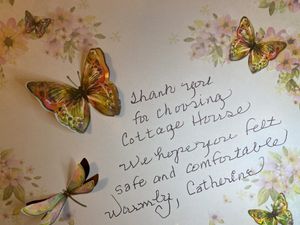 Thank you
for choosing
Cottage House
We hope you felt
safe and comfortable
Warmly, Catherine